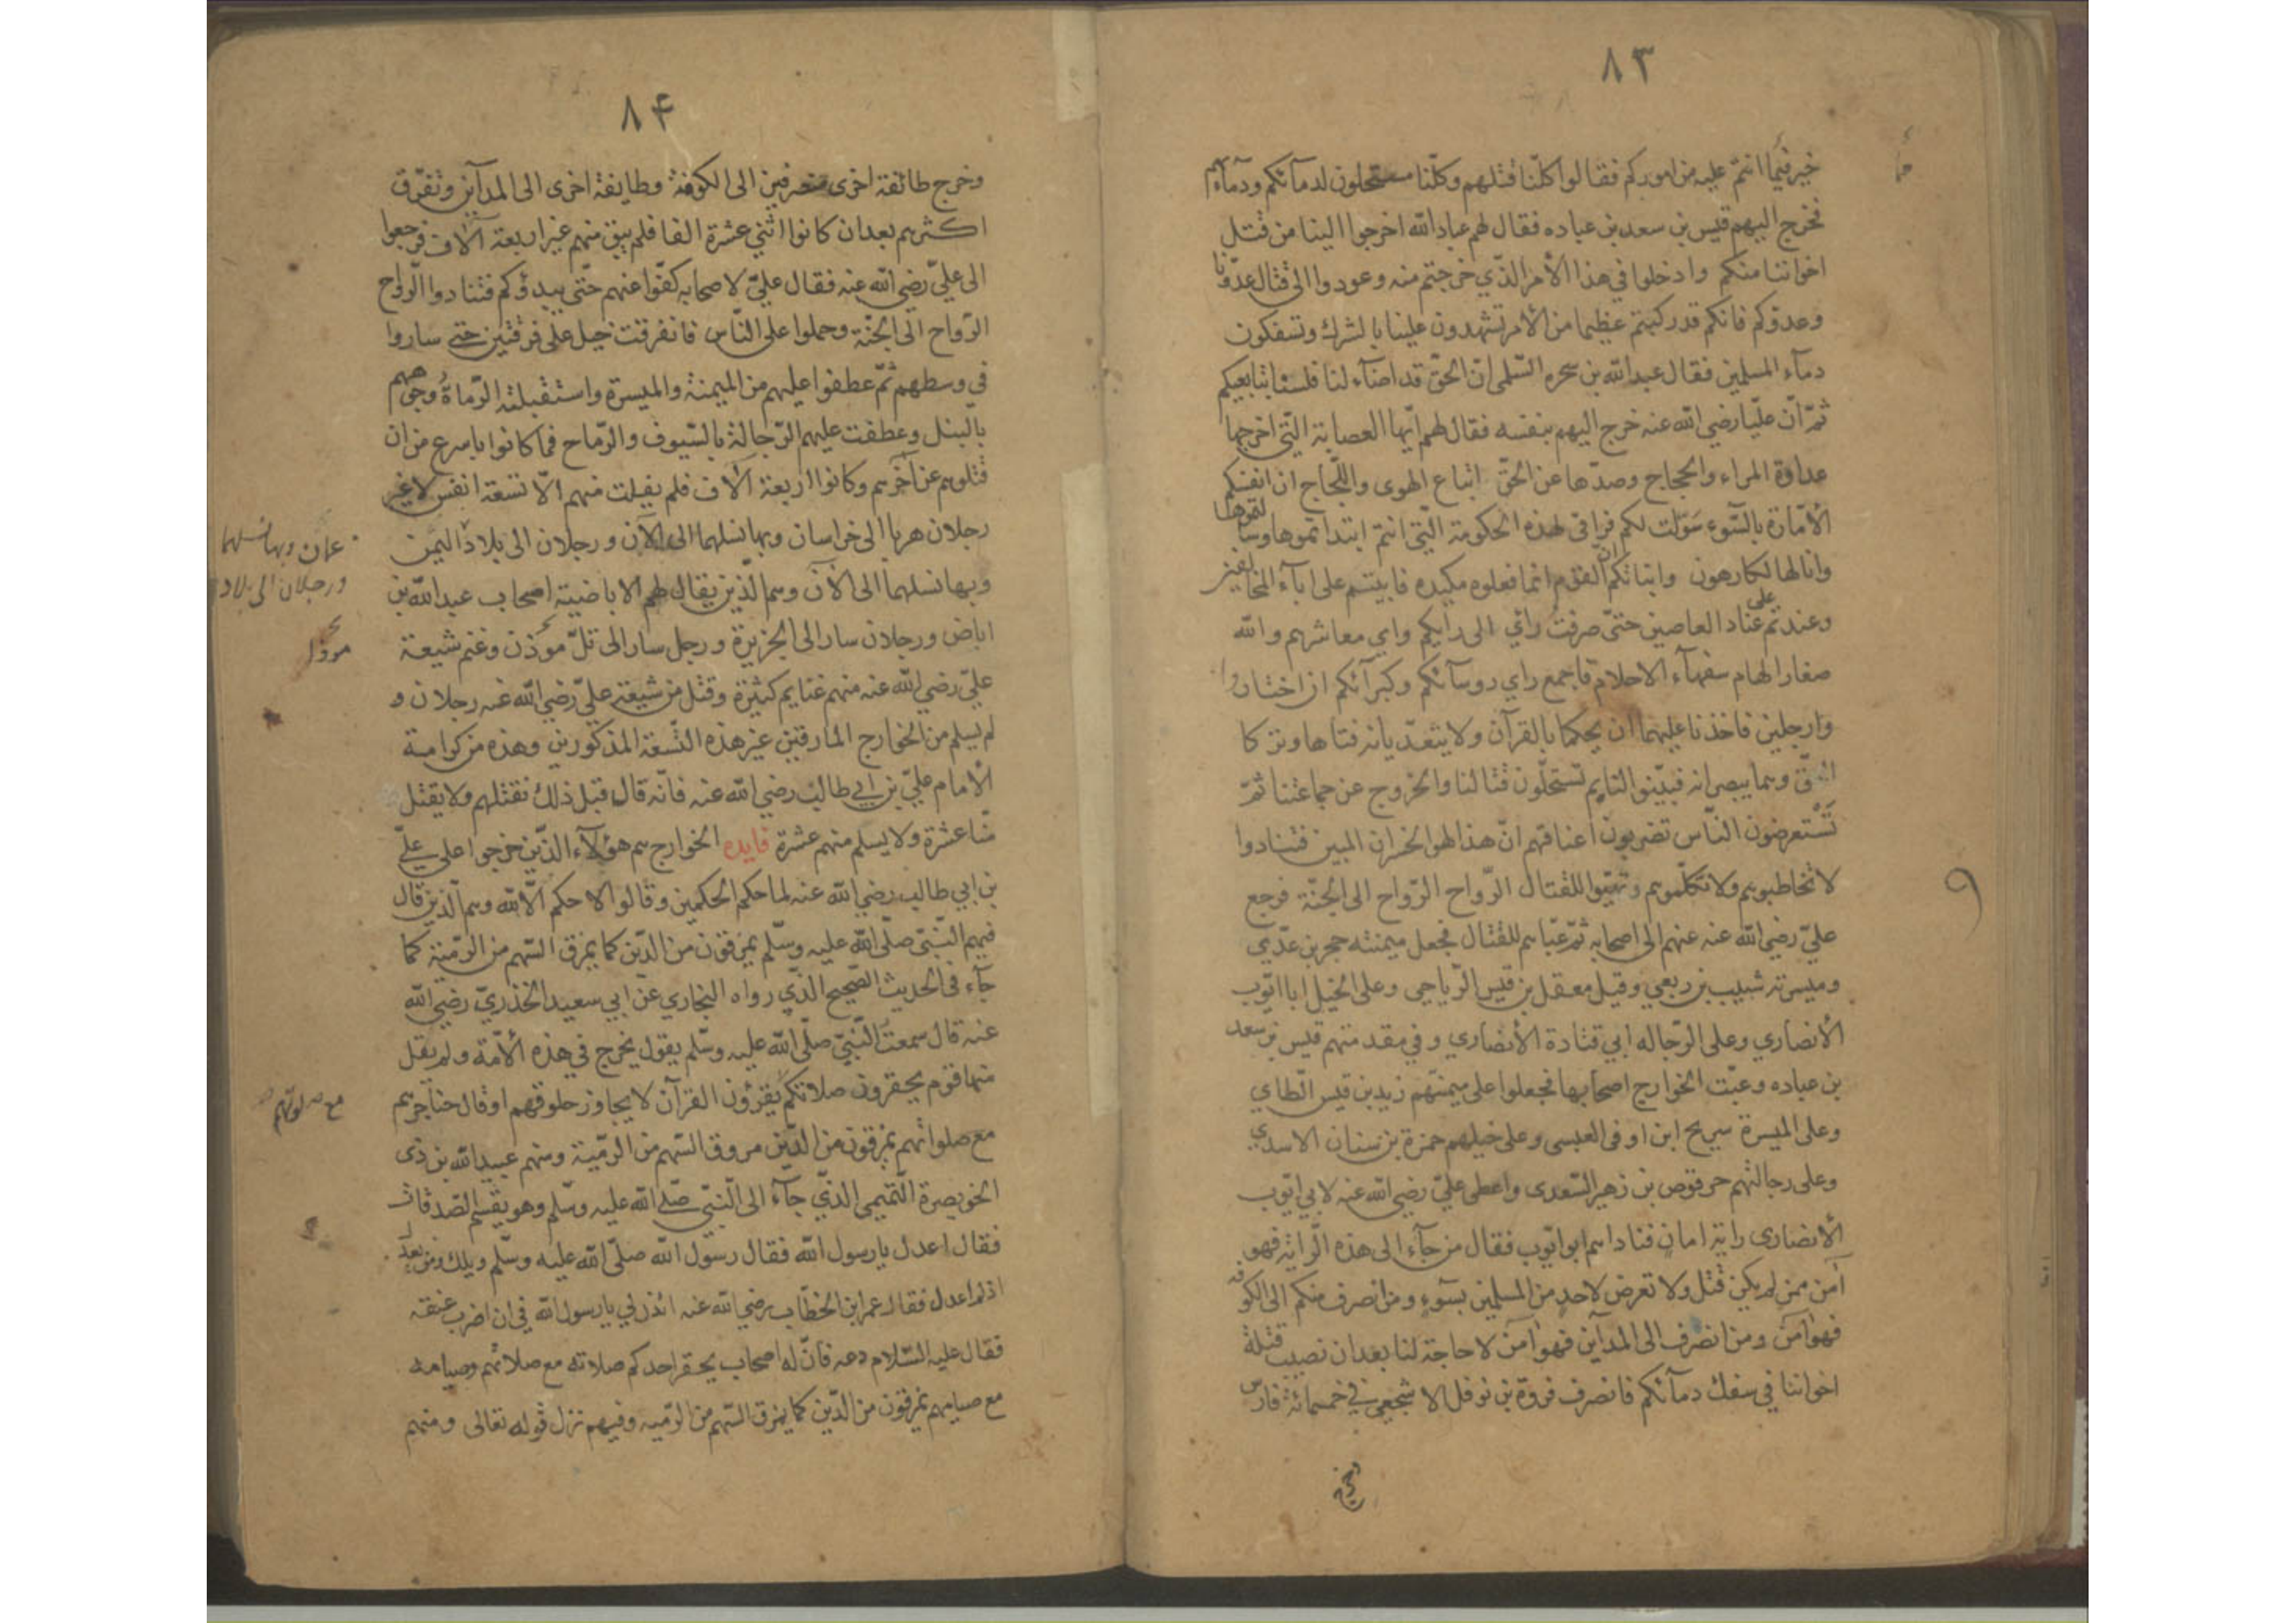 ٨٣
خير فيما انتم عليه من اموركم فقالوا كلّنا قتلهم وكلّنا مستحلون لدمآئكم ودمآءهم
فخرج اليهم قيس بن سعد بن عباده فقال لهم عباد الله اخرجوا الينا من قتل
اخواننا منكم وادخلوا في هذا الأمر الذّي خرجتم منه وعودوا الى قتال عدّونا
وعدوّكم فانكم قد ركبتم عظيما من الأمر تشهدون علينا بالشرك وتسفكون
دمآء المسلمين فقال عبد الله بن سحره السّلمى انّ الحقّ قد اضآء لنا فلسنا بتابعيكم
ثمّ انّ عليّا رضي الله عنه خرج اليهم بنفسه فقال لهم ايّها العصابة الّتي اخرجها
عداوة المراء والحجاج وصدّها عن الحقّ اتباع الهوى واللّجاج ان انفسكم
الأمّارة بالسّوء سوّلت لكم فراقى لهذه الحكومة الّتي انتم ابتداتموها وسألتموها
وانا لها لكارهون وانباتكم انّ القوم انما فعلوه مكيده فابيتم على ابآء المخالفين
وعندتم على عناد العاصين حتّى صرفت رأي الى رايكم واي معاشرهم والله
صغار الهام سفهآء الاحلام فاجمع راي روسآئكم وكبرآئكم ان اختاروا
وارجلين فاخذنا عليهما ان يحكما بالقرآن ولا يتعدّيانه فتاها وتركا
الحقّ وهما يبصرانه فبيّنوا لنا بم تستحلّون قتالنا والخروج عن جماعتنا ثمّ
تستعرضون النّاس تضربون اعناقهم انّ هذا لهو الخسران المبين فتنادوا
لا تخاطبوهم ولا تكلّموهم وتهيّوا للقتال الرّواح الرّواح الى الجنّة فرجع
عليّ رضي الله عنه عنهم الى اصحابه ثمّ عبّاهم للقتال فجعل ميمنته حجر بن عدّي
وميسرته شبيب بن ربعي وقيل معقل بن قيس الرّياحى وعلى الخيل ابا ايّوب
الأنصاري وعلى الرّجاله ابي قتادة الأنصاري وفي مقدمتهم قيس بن سعد
بن عباده وعبّت الخوارج اصحابها فجعلوا على ميمنتهم زيد بن قيس الطّاي
وعلى الميسرة سريح ابن اوفى العبسى وعلى خيلهم حمزة بن سنان الاسدي
وعلى رجالتهم حرقوص بن زهير السّعدى واعطى عليّ رضي الله عنه لابي ايّوب
الأنصارى راية امان فناداهم ابو ايّوب فقال من جآء الى هذه الرّاية فهو
آمن ممن لم يكن قتل ولا تعرض لاحد من المسلمين بسوٓء ومن انصرف منكم الى الكوفه
فهو آمن ومن انصرف الى المدآين فهو آمن لا حاجة لنا بعد ان نصيب قتلة
اخواننا في سفك دمآئكم فانصرف فروة بن نوفل الاشجعي في خمسمائة فارس
وخرج
٨۴
وخرج طائفة اخرى منصرفين الى الكوفة وطايفة اخرى الى المدآين وتفرّق
اكثرهم بعد ان كانوا اثني عشرة الفا فلم يبق منهم غير اربعة آلاف فرجعوا
الى عليّ رضي الله عنه فقال عليّ لاصحابه كفّوا عنهم حتّى يبدؤكم فتنادوا الرّواح
الرّواح الى الجنّة وحملوا على النّاس فانفرقت خيل على فرقتين حتى ساروا
في وسطهم ثمّ عطفوا عليهم من الميمنة والميسرة واستقبلته الرّماة وجوههم
بالنّبل وعطفت عليهم الرّجالة بالسّيوف والرّماح فما كانوا باسرع من ان
قتلوهم عن آخرهم وكانوا اربعة آلاف فلم يفلت منهم الّا تسعة انفس لا غير
رجلان هربا الى خراسان وبها نسلهما الى الآن ورجلان الى بلاد اليمن
وبها نسلهما الى الآن وهم الّذين يقال لهم الاباضيّة اصحاب عبد الله بن
اباض ورجلان سارا الى الجزيرة ورجل سار الى تلّ موذن وغنم شيعة
عليّ رضي الله عنه منهم غنايم كثيرة وقتل من شيعة عليّ رضي الله عنه رجلان و
لم يسلم من الخوارج المارقين غير هذه التّسعة المذكورين وهذه من كرامة
الأمام عليّ بن ابي طالب رضي الله عنه فانّه قال قبل ذلك نقتلهم ولا يقتل
منّا عشرة ولا يسلم منهم عشرة فايده الخوارج هم هؤلآء الذّين خرجوا على عليّ
بن ابي طالب رضي الله عنه لما حكم الحكمين وقالوا لا حكم الّا لله وهم الّذين قال
فيهم النّبيّ صلّى الله عليه وسلّم يمرقون من الدّين كما يمرق السّهم من الرّمية كما
جآء في الحديث الصّحيح الذّي رواه البخاري عن ابي سعيد الخذريّ رضي الله
عنه قال سمعت النّبيّ صلّى الله عليه وسلّم يقول يخرج في هذه الأمّة ولم يقل
منها قوم يحقرون صلاتكم يقرؤن القرآن لا يجاوز حلوقهم او قال حناجرهم
مع صلواتهم يمرقون من الدّين مروق السّهم من الرّمية ومنهم عبيد الله بن ذى
الخويصرة التّميمى الذّي جآء الى النّبيّ صلّى الله عليه وسلّم وهو يقسم الصّدقات
فقال اعدل يا رسول الله فقال رسول الله صلّى الله عليه وسلّم ويلك ومن يعدل
اذ لم اعدل فقال عمر ابن الخطّاب رضي الله عنه ائذن لي يا رسول الله في ان اضرب عنقه
فقال عليه السّلام دعه فانّ له اصحاب يحقر احدكم صلاته مع صلاتهم وصيامه
مع صيامهم يمرقون من الدّين كما يمرق السّهم من الرّميه وفيهم نزل قوله تعالى ومنهم
عمان وبها نسلهما
ورجلان الى بلاد